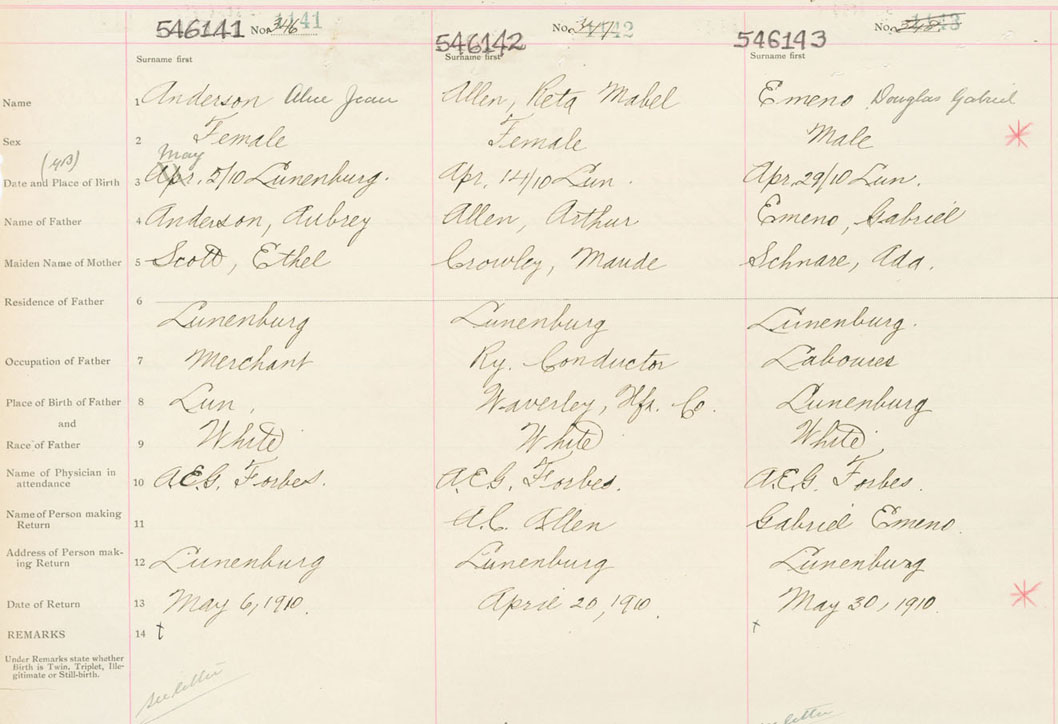 546141 No. 346 4141 546142 No. 347 4142 546143 No. 348 4143
Surname first Surname first Surname first
Name 1 Anderson Alice Jean Allen, Reta Mabel Emeno Douglas Gabriel
Sex 2 Female Female Male
May
Date and Place of Birth 3 Apr. 5/10 Lunenburg. Apr. 14/10 Lun. Apr. 29/10 Lun.
Name of Father 4 Anderson, Aubrey Allen, Arthur Emeno, Gabriel
Maiden Name of Mother 5 Scott, Ethel Crowley, Maude Schnare, Ada.
Residence of Father 6 Lunenburg Lunenburg Lunenburg.
Occupation of Father 7 Merchant Ry. Conductor Labourer
Place of Birth of Father 8 Lun. Waverley, Hfx. Co. Lunenburg
and
Race of Father 9 White White White
Name of Physician in attendance 10 A.E.G. Forbes. A.E.G. Forbes. A.E.G. Forbes.
Name of Person making Return 11 A.C. Allen Gabriel Emeno.
Address of Person mak-
ing Return 12 Lunenburg Lunenburg Lunenburg
Date of Return 13 May 6, 1910. April 20, 1910. May 30, 1910.
REMARKS 14
Under Remarks state whether
Birth is Twin, Triplet, Ille-
gitimate or Still-birth.
see letter letter